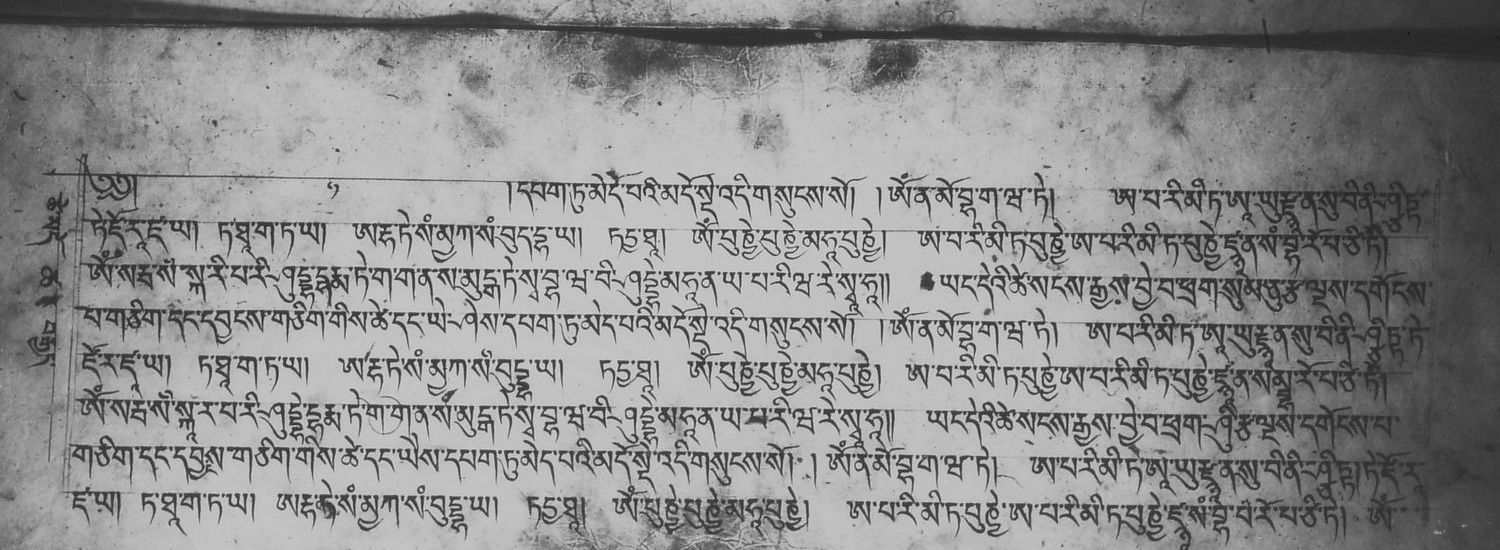 ༄༅། །དཔག་ཏུ་མེད་པའི་མདོ་སྡེ་འདི་གསུངས་སོ། །ཨོཾ་ན་མོ་བྷ་ག་ཝ་ཏེ། ཨ་པ་རི་མི་ཏ་ཨཱ་ཡུརྫྙཱ་ན་སུ་བི་ནི་ཤྩི་ཏ་
ཏེ་ཛོ་རཱ་ཛཱ་ཡ། ཏ་ཐཱ་ག་ཏ་ཡ། ཨརྷ་ཏེ་སཾ་མྱཀ་སཾ་བུད་དྷཱ་ཡ། ཏདྱ་ཐཱ། ཨོཾ་པུཎྱེ་པུཎྱེ་མ་ཧཱ་པུཎྱེ། ཨ་པ་རི་མི་ཏ་པུཎྱེ་ཨ་པ་རི་མི་ཏ་པུཎྱེ་ཛྙཱ་ན་སཾ་བྷཱ་རོ་པ་ཙི་ཏེ།
ཨོཾ་སརྦ་སཾ་སྐཱ་རི་པ་རི་ཤུདྡྷ་དྷརྨ་ཏེ་ག་ག་ན་ས་མུངྒ་ཏེ་སྭ་བྷཱ་ཝ་བི་ཤུདྡྷེ་མ་ཧཱ་ན་ཡ་པ་རི་ཝ་རེ་སྭཱ་ཧཱ།། ཡང་དེའི་ཚེ་སངས་རྒྱས་བྱེ་བ་ཕྲག་སུམ་ཅུ་རྩ་ལྔས་དགོངས་
པ་གཅིག་དང་དབྱངས་གཅིག་གིས་ཚེ་དང་ཡེ་ཤེས་དཔག་ཏུ་མེད་པའི་མདོ་སྡེ་འདི་གསུངས་སོ། །ཨོཾ་ན་མོ་བྷ་ག་ཝ་ཏེ། ཨ་པ་རི་མི་ཏ་ཨཱ་ཡུརྫྙཱ་ན་སུ་བི་ནི་ཤྩི་ཏ་ཏེ་
ཛོ་ར་ཛཱ་ཡ། ཏ་ཐཱ་ག་ཏ་ཡ། ཨརྷ་ཏེ་སཾ་མྱཀ་སཾ་བུདྡྷཱ་ཡ། ཏདྱ་ཐཱ། ཨོཾ་པུཎྱེ་པུཎྱེ་མ་ཧཱ་པུཎྱེ། ཨ་པ་རི་མི་ཏ་པུཎྱེ་ཨ་པ་རི་མི་ཏ་པུཎྱེ་ཛྙཱ་ན་སཾ་བྷཱ་རོ་པ་ཙི་ཏེ།
ཨོཾ་སརྦ་སཾ་སྐཱ་ར་པ་རི་ཤུདྡྷེ་དྷརྨ་ཏེ་ག་ག་ན་ས་མུངྒ་ཏེ་སྭ་བྷཱ་ཝ་བི་ཤུདྡྷེ་མ་ཧཱ་ན་ཡ་པ་རི་ཝ་རེ་སྭཱ་ཧཱ།། ཡང་དེའི་ཚེ་སངས་རྒྱས་བྱེ་བ་ཕྲག་ཉི་ཤུ་རྩ་ལྔས་དགོངས་པ་
གཅིག་དང་དབྱངས་གཅིག་གིས་ཚེ་དང་ཡེས་དཔག་ཏུ་མེད་པའི་མདོ་སྡེ་འདི་གསུངས་སོ། །ཨོཾ་ན་མོ་བྷ་ག་ཝ་ཏེ། ཨ་པ་རི་མི་ཏེ་ཨཱ་ཡུརྫྙཱ་ན་སུ་བི་ནི་ཤྩི་ཏ། ཏེ་ཛོ་ར་
ཛཱ་ཡ། ཏ་ཐཱ་ག་ཏ་ཡ། ཨརྷ་ཏེ་སཾ་མྱཀ་སཾ་བུདྡྷཱ་ཡ། ཏདྱ་ཐཱ། ཨོཾ་པུཎྱེ་པུཎྱེ་མ་ཧཱ་པུཎྱེ། ཨ་པ་རི་མི་ཏ་པུཎྱེ་ཨ་པ་རི་མི་ཏ་པུཎྱེ་ཛྙཱ་སཾ་བྷཱ་རོ་པ་ཙི་ཏེ། ཨོཾ་